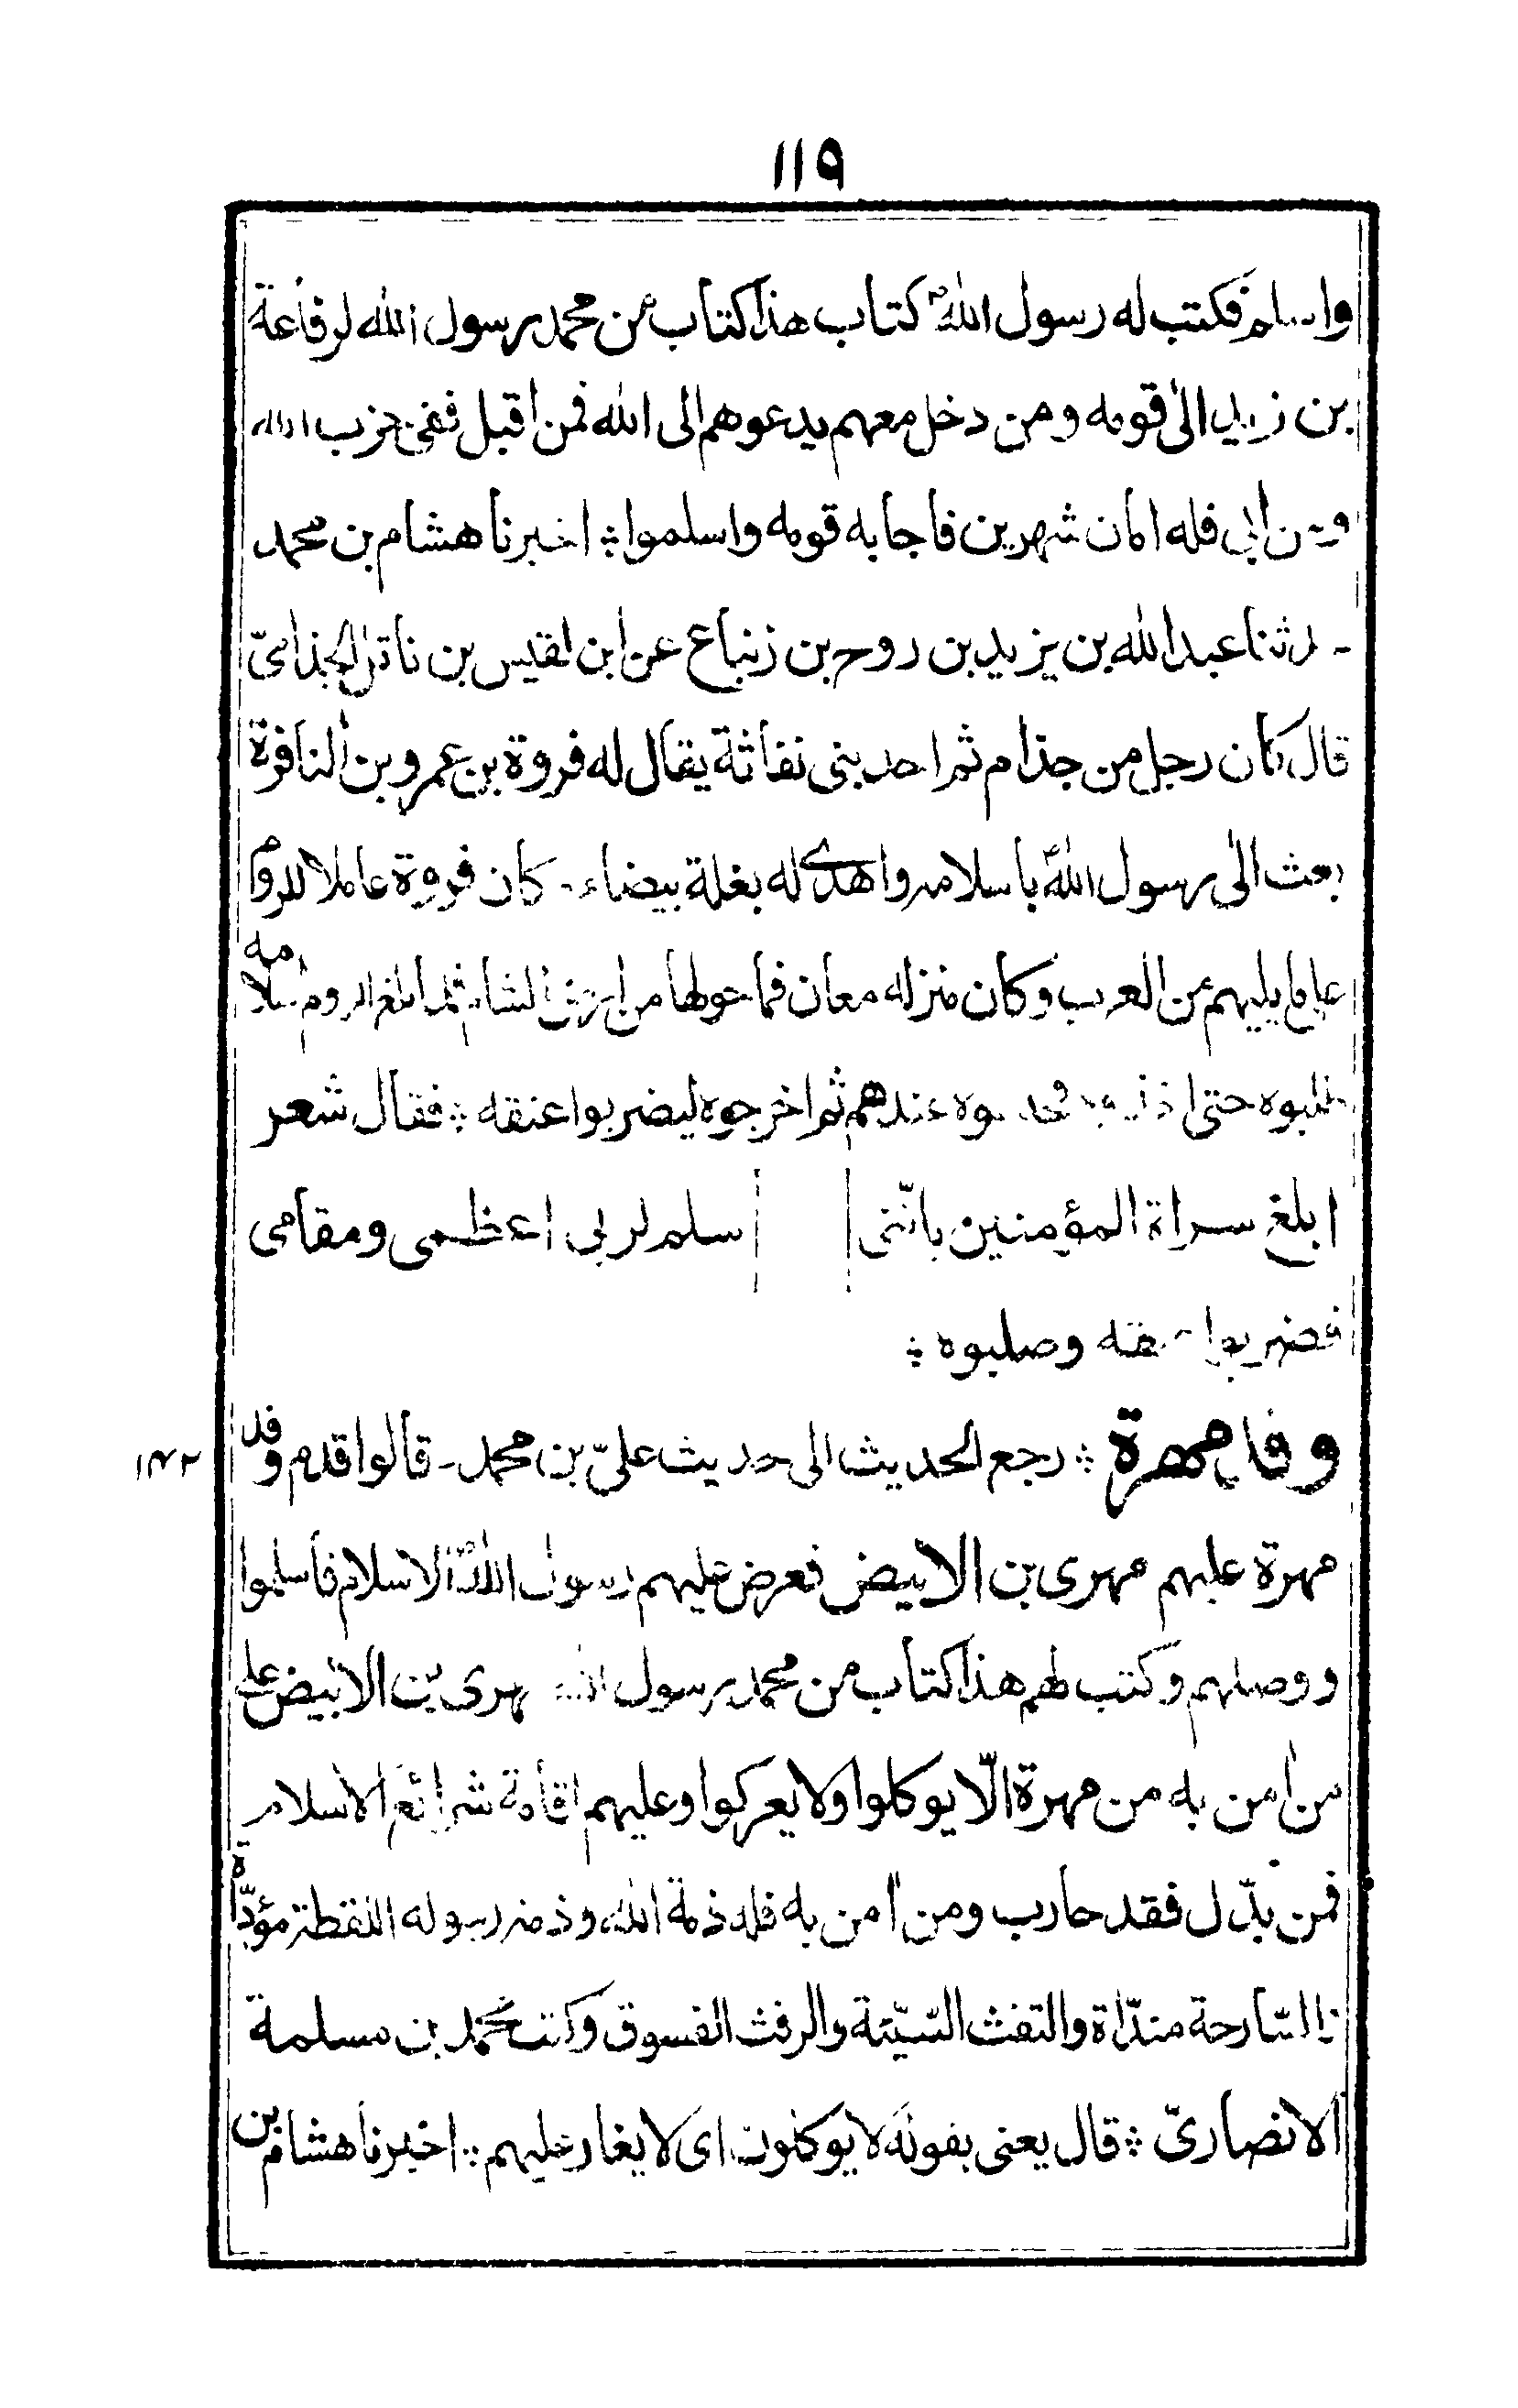 ١١٩
واسلم فكتب له رسول اللهؐ كتاب هذا كتاب من محمد رسول الله لرفاعة
بن زيد الى قومه ومن دخل معهم يدعوهم الى الله فمن اقبل ففى حزب الله
ومن ابى فله امان شهرين فاجابه قومه واسلموا ؞ اخبرنا هشام بن محمد
عبد الله بن يزيد بن روح بن زنباع عن ابن لقيس بن ناتل الجذامىّ
قال كان رجل من جذام ثم احد بنى نفاثة يقال له فروة بن عمرو بن النافرة
بعث الى رسول اللهؐ باسلامه واهدى له بغلة بيضاء - كان فروة عاملا للروم
على ما يليهم من العرب وكان منزله معان فما حولها من ارض الشام فلما بلغ الروم اسلامه
طلبوه حتى عندهم ثم اخرجوه ليضربوا عنقه ؞ فقال شعر
ابلغ سراة المؤمنين بانّنى سلم لربى اعظمى ومقامى
فضربوا عنقه وصلبوه ؞
وفد مهرة ؞ رجع الحديث الى حديث علىّ بن محمد - قالوا قدم وفد
١٤٢
مهرة عليهم مهرى بن الابيض فعرض عليهم رسول اللهؐ الاسلام فاسلموا
ووصلهم وكتب لهم هذا كتاب من محمد رسول الله لمهرى بن الابيض على
من اٰمن به من مهرة الّا يوكلوا ولا يعركوا وعليهم اقامة شرائع الاسلام
فمن بدّل فقد حارب ومن اٰمن به فله ذمة الله وذمة رسوله اللقطة مؤدّاة
والسّارحة مندّاة والتفث السّيّئة والرفث الفسوق وكتب محمد بن مسلمة
الانصارىّ ؞ قال يعنى بقوله لا يوكلون اى لا يغار عليهم ؞ اخبرنا هشام بن